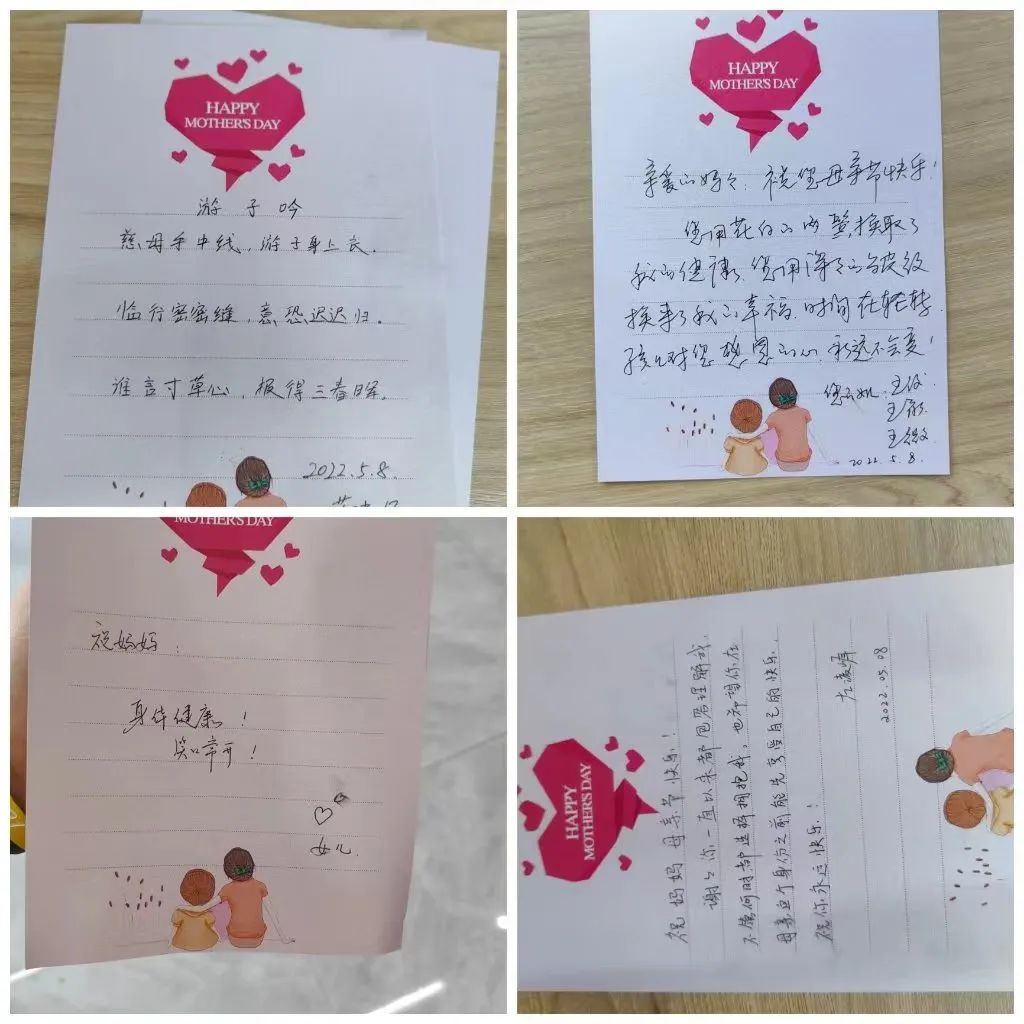 HAPPY
MOTHER'S DAY
游子吟
慈母手中线，游子身上衣．
临行密密缝，意恐迟迟归．
谁言寸草心，报得三春晖．
2022.5.8.
HAPPY
MOTHER'S DAY
亲爱的妈々：祝您母亲节快乐！
您用花白的两鬓换取了
我的健康，您用深々的皱纹
换来了我的幸福，时间在轻转，
孩儿对您感恩的心，永远不会变！
王
王
王
2022.5.8.
MOTHER'S DAY
祝妈妈：
身体健康！
笑口常开！
女儿
HAPPY
MOTHER'S DAY
祝妈妈母亲节快乐！
谢々你一直以来都包容理解我．
不管何时都选择拥抱我，也希望你在
母亲这个身份之前能先享受自己的快乐．
祝你永远快乐！
2022.05.08